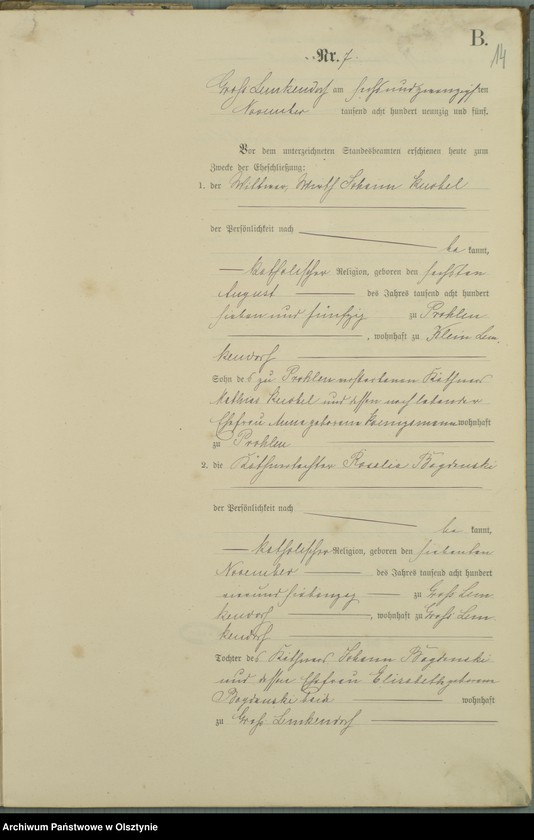 B.
14
Nr. 7.
Groß Lemkendorf am sechsundzwanzigsten
November tausend acht hundert neunzig und fünf.
Vor dem unterzeichneten Standesbeamten erschienen heute zum
Zwecke der Eheschließung:
1. der Wittwer, Wirth Johann Kuobel
der Persönlichkeit nach
be kannt,
katholischer Religion, geboren den sechsten
August des Jahres tausend acht hundert
sieben und fünfzig zu Prohlen
, wohnhaft zu Klein Lem-
kendorf
Sohn des zu Prohlen verstorbenen Käthners
Mathias Kuobel und dessen nachlebender
Ehefrau Anna geborene wohnhaft
zu Prohlen
2. die Käthnertochter Rosalia Bogdenski
der Persönlichkeit nach
be kannt,
katholischer Religion, geboren den siebenten
November des Jahres tausend acht hundert
vierundsiebenzig zu Groß Lem-
kendorf , wohnhaft zu Groß Lem-
kendorf
Tochter des Käthners Johann Bogdenski
und dessen Ehefrau Elisabeth geborenen
wohnhaft
zu Groß Lemkendorf
Archiwum Państwowe w Olsztynie